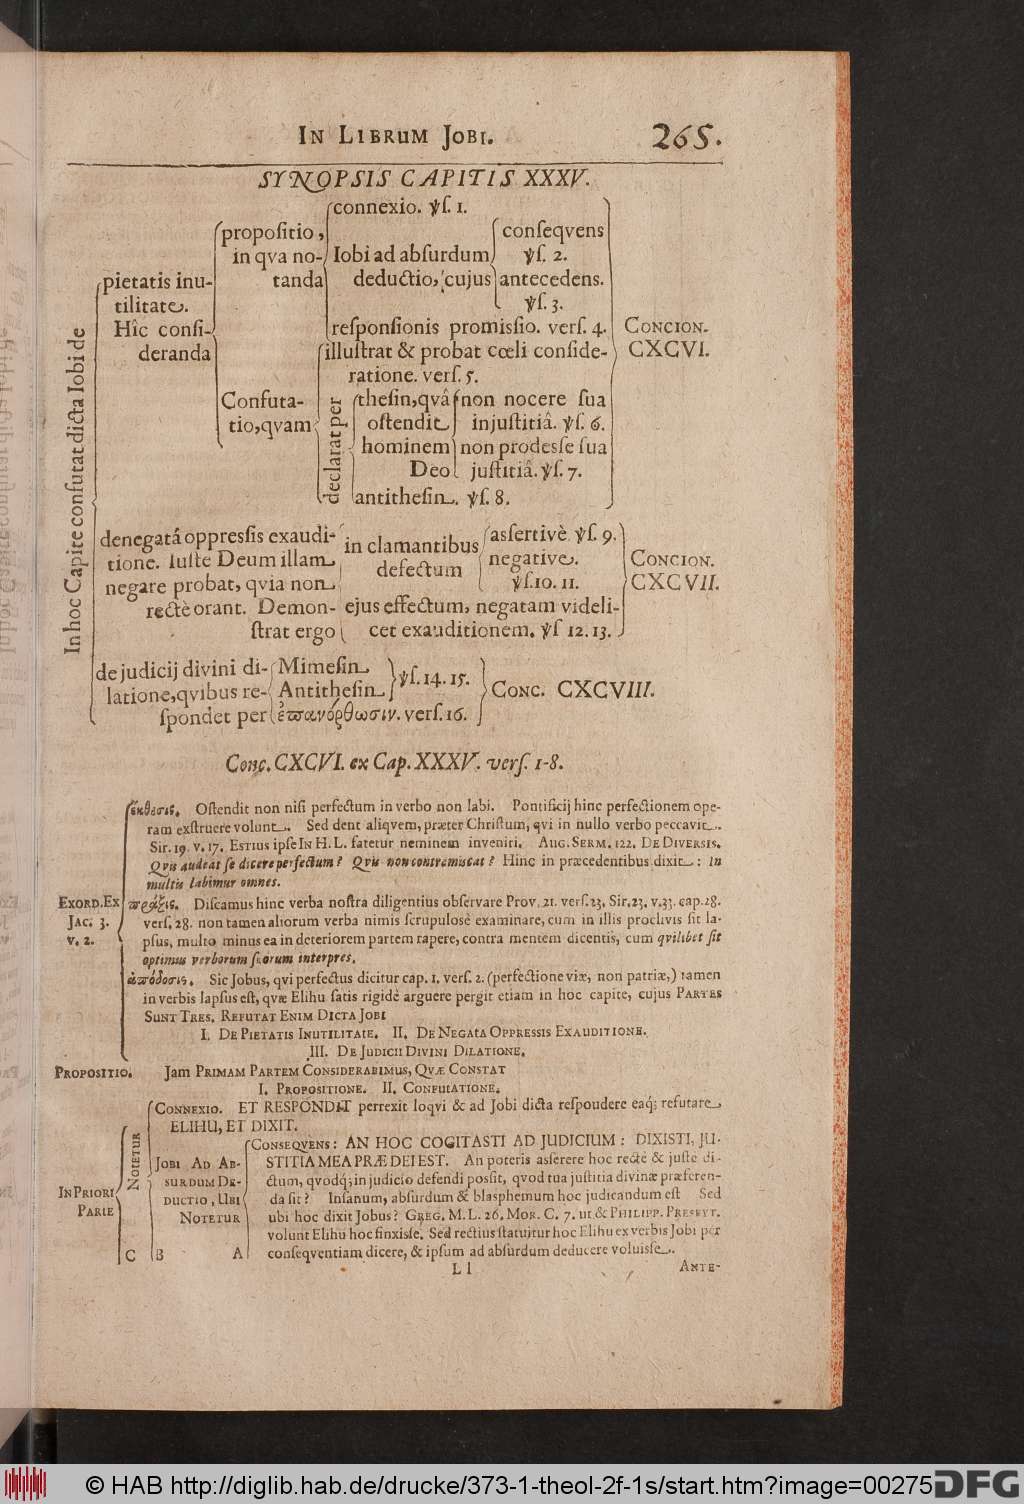 IN LIBRUM JOBI. 265.
SYNOPSIS CAPITIS XXXV.
In hoc Capite confutat dicta Iobi de
pietatis inu-
tilitate.
Hîc consi-
deranda
propositio,
in qva no-
tanda
connexio. ỳſ. 1.
Iobi ad absurdum
deductio, cujus
conseqvens
ỳſ. 2.
antecedens.
ỳſ. 3.
responsionis promissio. vers. 4.
Confuta-
tio, qvam
illustrat & probat cœli conside-
ratione. vers. 5.
declarat per
thesin, qvâ
ostendit
hominem
Deo
non nocere sua
injustitiâ. ỳſ. 6.
non prodesse sua
justitiâ. ỳſ. 7.
antithesin. ỳſ. 8.
CONCION.
CXCVI.
denegatá oppressis exaudi-
tione. Iuste Deum illam
negare probat, qvia non
rectè orant. Demon-
strat ergo
in clamantibus
defectum
assertivè ỳſ. 9.
negative.
ỳſ. 10. 11.
ejus effectum, negatam videli-
cet exauditionem. ỳſ 12. 13.
CONCION.
CXCVII.
de judicij divini di-
latione, qvibus re-
spondet per
Mimesin
Antithesin
ỳſ. 14. 15.
ἐπανόρθωσιν. vers. 16.
CONC. CXCVIII.
Conc. CXCVI. ex Cap. XXXV. vers. 1-8.
EXORD. EX
JAC. 3.
v. 2.
ἔκθεσις. Ostendit non nisi perfectum in verbo non labi. Pontificij hinc perfectionem ope-
ram exstruere volunt. Sed dent aliqvem, præter Christum, qvi in nullo verbo peccavit.
Sir. 19. v. 17. ESTIUS ipse IN H. L. fatetur neminem inveniri. AUG. SERM. 122. DE DIVERSIS.
Qvis audeat se dicere perfectum? Qvis non contremiscat? Hinc in præcedentibus dixit: In
multis labimur omnes.
πρᾶξις. Discamus hinc verba nostra diligentius observare Prov. 21. vers. 23. Sir. 23. v. 33. cap. 28.
vers. 28. non tamen aliorum verba nimis scrupulosè examinare, cum in illis proclivis sit la-
psus, multo minus ea in deteriorem partem rapere, contra mentem dicentis, cum qvilibet sit
optimus verborum suorum interpres.
ἀπόδοσις. Sic Jobus, qvi perfectus dicitur cap. 1. vers. 2. (perfectione viæ, non patriæ,) tamen
in verbis lapsus est, qvæ Elihu satis rigidè arguere pergit etiam in hoc capite, cujus PARTES
SUNT TRES. REFUTAT ENIM DICTA JOBI
I. DE PIETATIS INUTILITATE. II. DE NEGATA OPPRESSIS EXAUDITIONE.
III. DE JUDICII DIVINI DILATIONE.
PROPOSITIO. Jam PRIMAM PARTEM CONSIDERABIMUS, QVÆ CONSTAT
I. PROPOSITIONE. II. CONFUTATIONE.
IN PRIORI
PARTE
NOTETUR
CONNEXIO. ET RESPONDIT perrexit loqvi & ad Jobi dicta respondere eaq; refutare
ELIHU, ET DIXIT.
JOBI AD AB-
SURDUM DE-
DUCTIO, UBI
NOTETUR
CONSEQVENS: AN HOC COGITASTI AD JUDICIUM: DIXISTI, JU-
STITIA MEA PRÆ DEI EST. An poteris asserere hoc rectè & juste di-
ctum, qvodq; in judicio defendi possit, qvod tua justitia divinæ præferen-
da sit? Insanum, absurdum & blasphemum hoc judicandum est Sed
ubi hoc dixit Jobus? GREG. M. L. 26. MOR. C. 7. ut & PHILIPP. PRESBYT.
volunt Elihu hoc finxisse. Sed rectius statuitur hoc Elihu ex verbis Jobi per
conseqventiam dicere, & ipsum ad absurdum deducere voluisse.
C B A
L l ANTE-
© HAB http://diglib.hab.de/drucke/373-1-theol-2f-1s/start.htm?image=00275 DFG